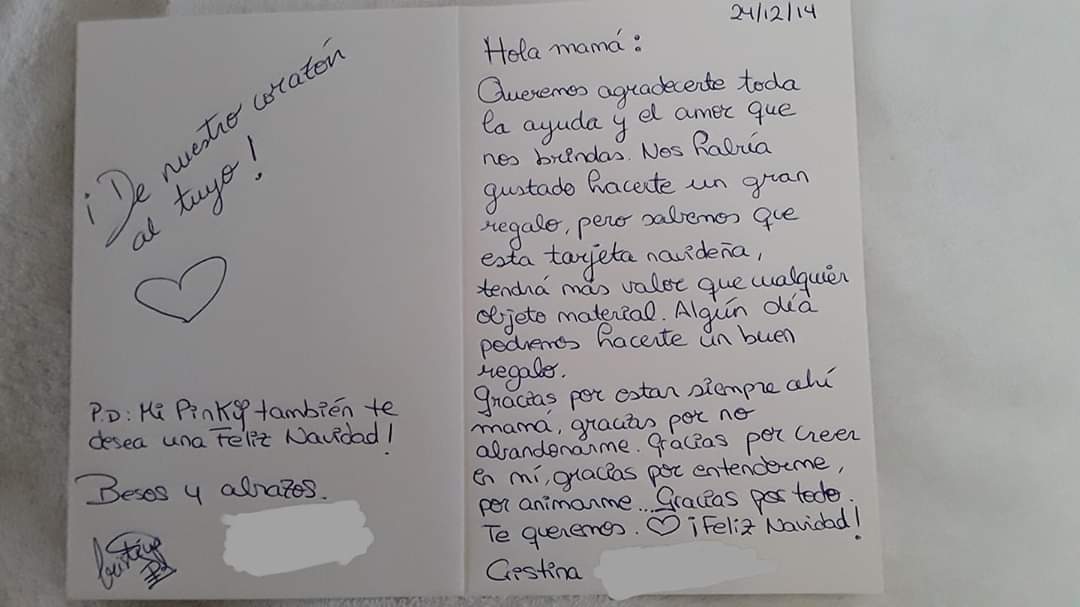 ¡De nuestro corazón
al tuyo!
P.D: Mi Pinky también te
desea una Feliz Navidad!
Besos y abrazos.
24/12/14
Hola mamá:
Queremos agradecerte toda
la ayuda y el amor que
nos brindas. Nos habría
gustado hacerte un gran
regalo, pero sabemos que
esta tarjeta navideña,
tendrá más valor que cualquier
objeto material. Algún día
podremos hacerte un buen
regalo.
Gracias por estar siempre ahí
mamá, gracias por no
abandonarme. Gracias por creer
en mí, gracias por entenderme,
por animarme... Gracias por todo.
Te queremos. ♡ ¡Feliz Navidad!
Cristina